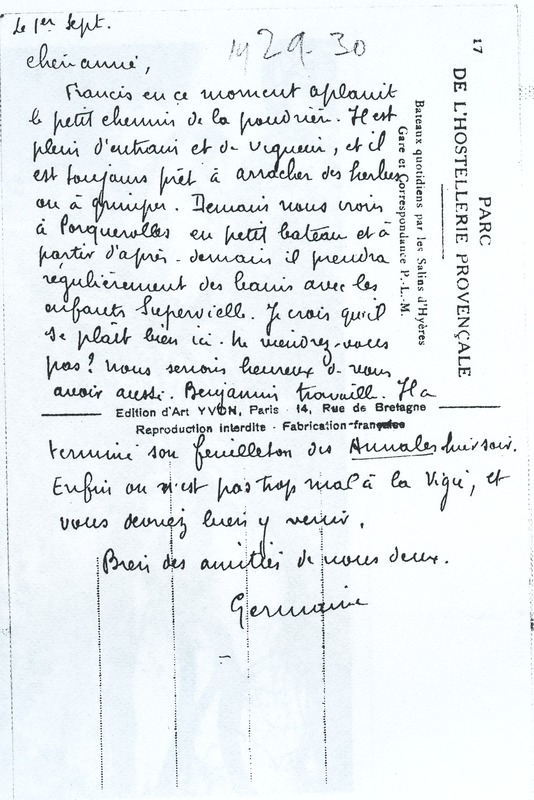 Le 1er Sept.
1929-30
cher ami,
Francis en ce moment aplanit
le petit chemin de la poudrière. Il est
plein d'entrain et de vigueur, et il
est toujours prêt à arracher des herbes
ou à grimper. Demain nous irons
à Porquerolles en petit bateau et à
partir d'après-demain il prendra
régulièrement des bains avec les
enfants Supervielle. Je crois qu'il
se plaît bien ici. Ne viendrez-vous
pas? Nous serions heureux de vous
avoir aussi. Benjamin travaille. Il a
terminé son feuilleton des Annales hier soir.
Enfin on n'est pas trop mal à la Vigie, et
vous devriez bien y venir.
Bien des amitiés de nous deux.
Germaine
17
PARC
DE L'HOSTELLERIE PROVENÇALE
Bateaux quotidiens par les Salins d'Hyères
Gare et Correspondance P.-L.-M.
Edition d'Art YVON, Paris - 14, Rue de Bretagne
Reproduction interdite - Fabrication française